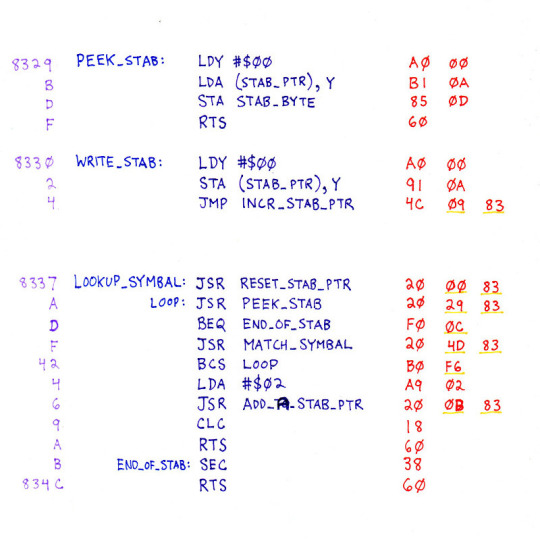 8329 PEEK_STAB: LDY #$00 A0 00
B LDA (STAB_PTR), Y B1 0A
D STA STAB_BYTE 85 0D
F RTS 60
8330 WRITE_STAB: LDY #$00 A0 00
2 STA (STAB_PTR), Y 91 0A
4 JMP INCR_STAB_PTR 4C 09 83
8337 LOOKUP_SYMBAL: JSR RESET_STAB_PTR 20 00 83
A LOOP: JSR PEEK_STAB 20 29 83
D BEQ END_OF_STAB F0 0C
F JSR MATCH_SYMBAL 20 4D 83
42 BCS LOOP B0 F6
4 LDA #$02 A9 02
6 JSR ADD_TA_STAB_PTR 20 0B 83
9 CLC 18
A RTS 60
B END_OF_STAB: SEC 38
834C RTS 60